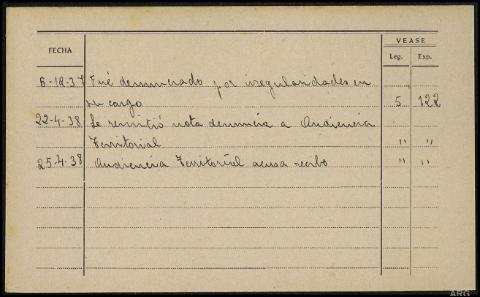 VEASE
FECHA Leg. Exp.
6-12-37 Fué denunciado por irregularidades en
su cargo 5 122
22-4-38 Se remitió nota denuncia a Audiencia
Territorial " "
25-4-38 Audiencia Territoriel acusa recibo " "
ARG